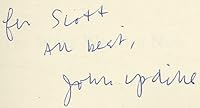 for Scott
All best,
John Updike